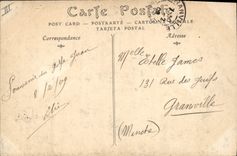 III
Carte Postale
POST CARD — POSTKARTE — CARTOLINA POSTALE
TARJETA POSTAL
Correspondance
Adresse
GRANVILLE
Souvenir du
8/2/09
Melle Estelle James
131 Rue des Juifs
Granville
(Manche)